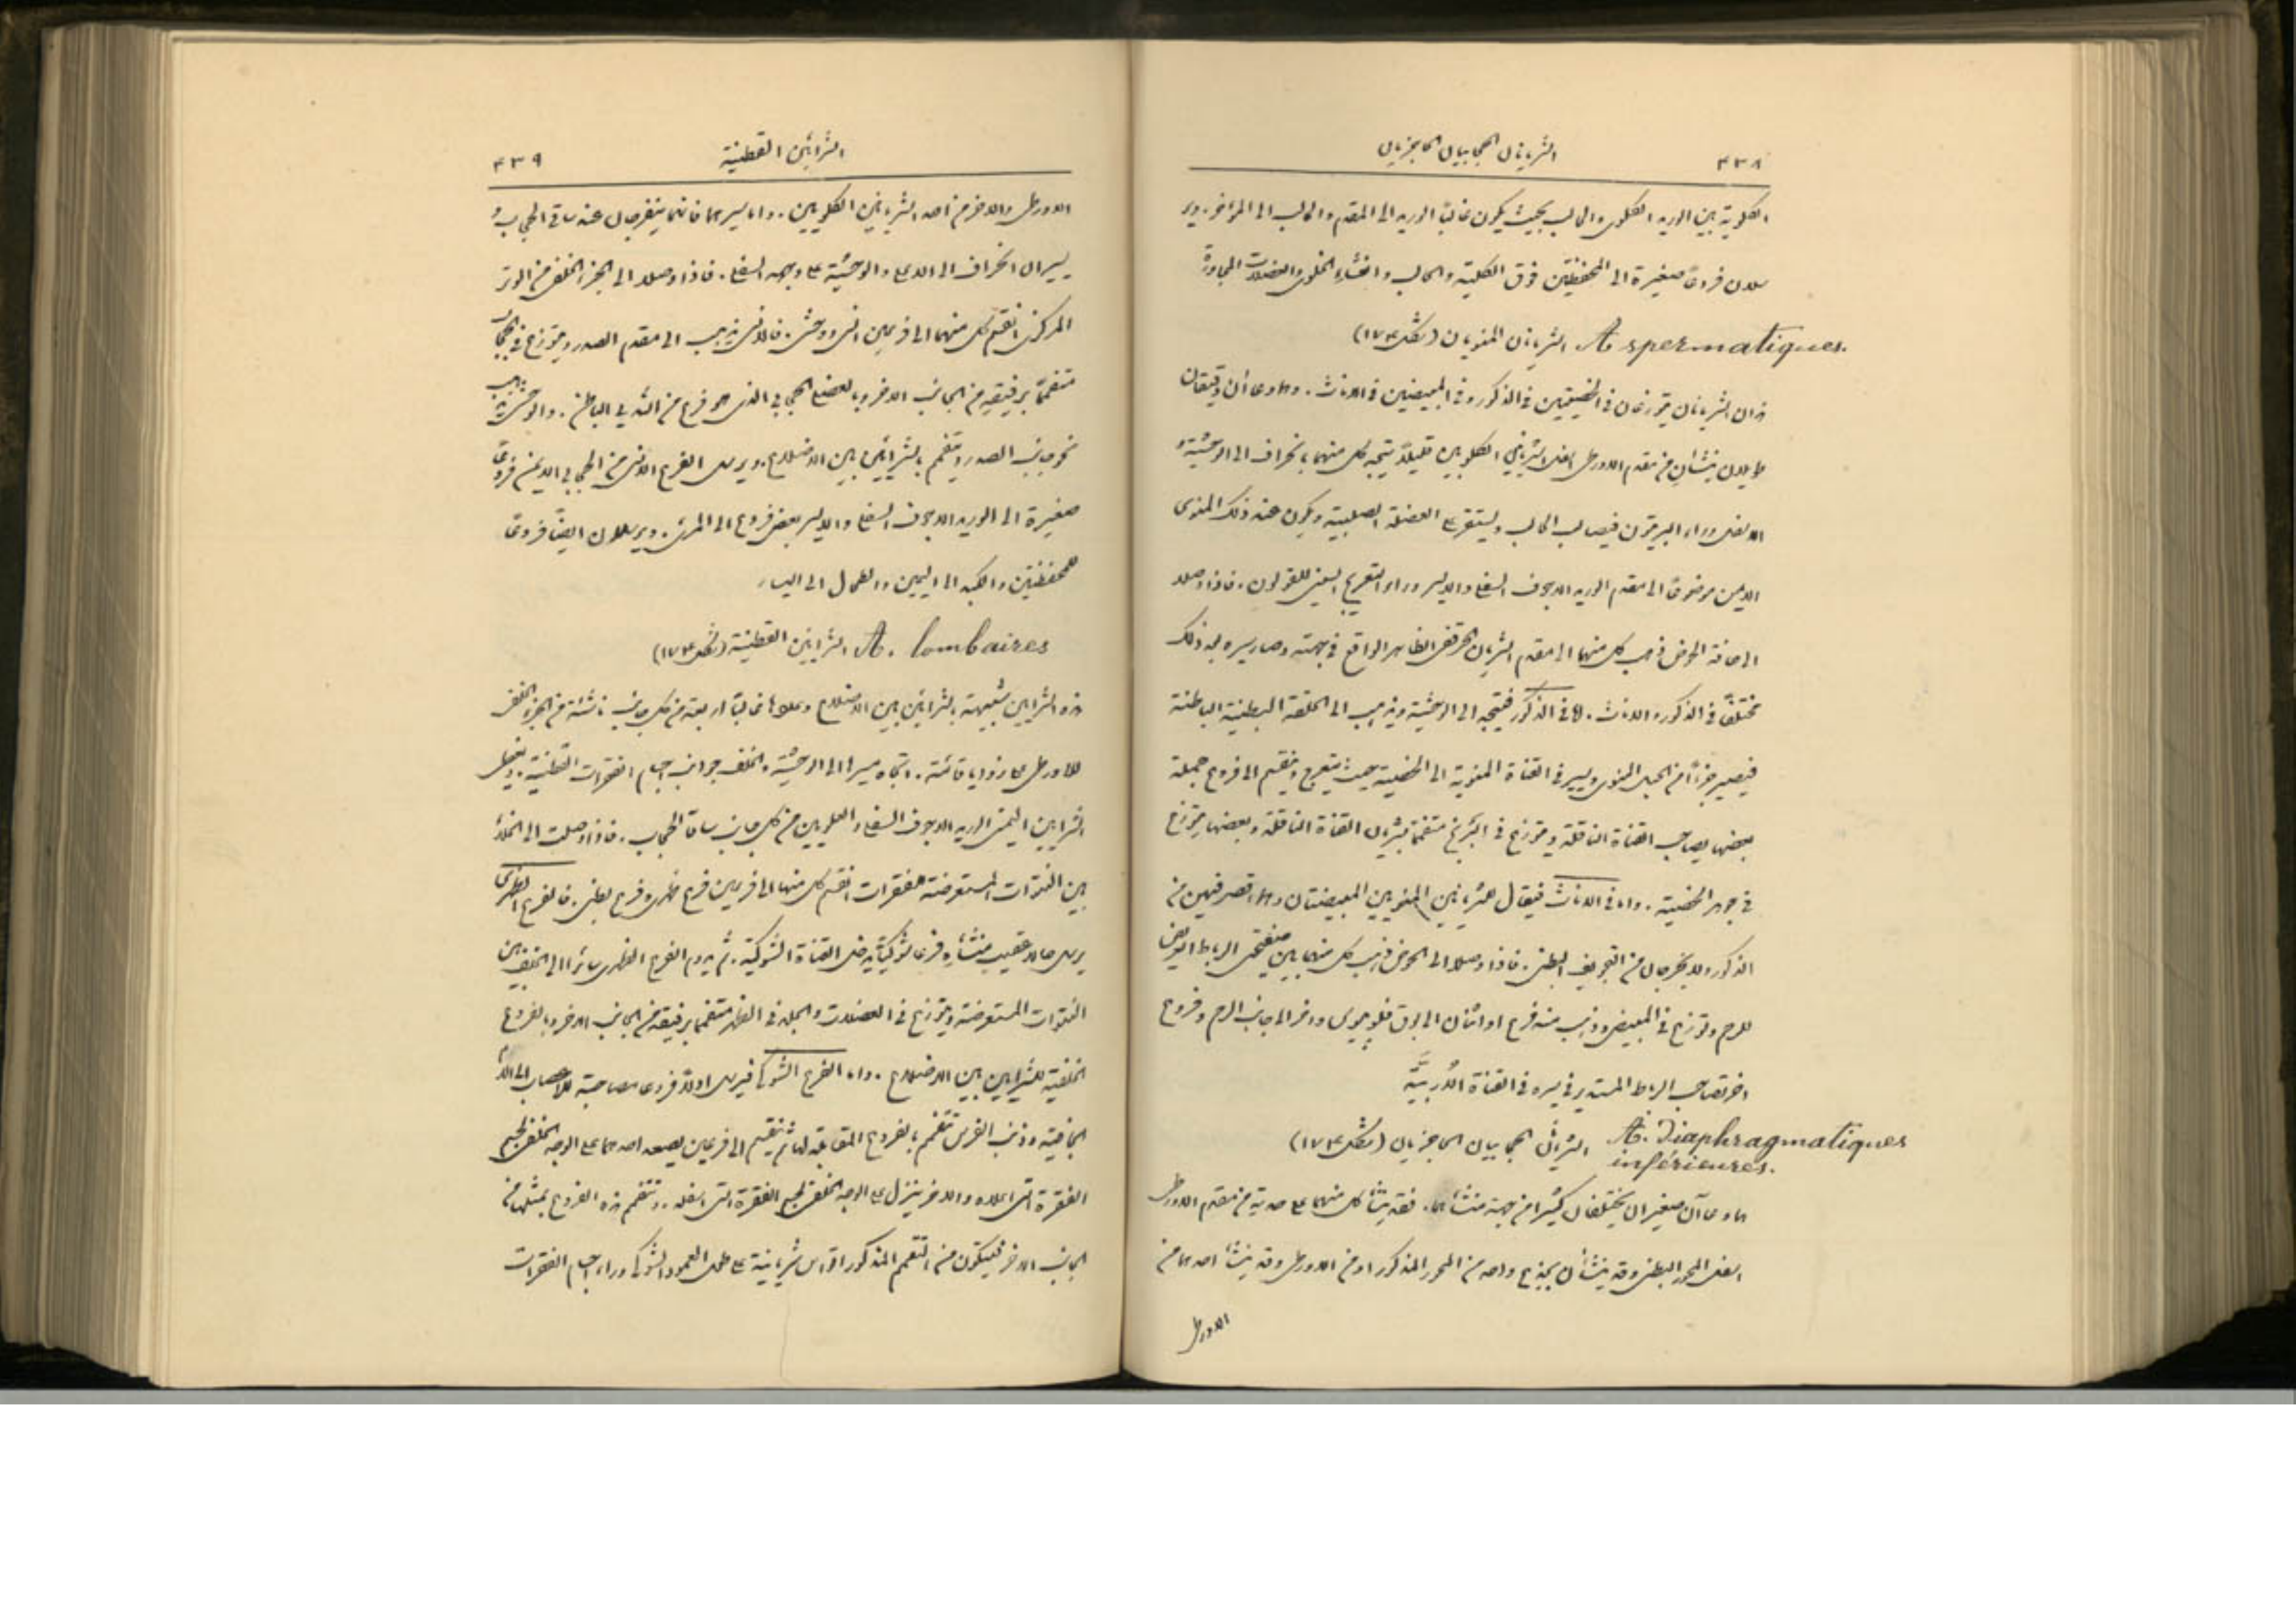 ٤٣٨ الشريانان الحجابيان الحاجزيان
الكلوية بين الوريد الكلوي والحالب بحيث يكون غالبًا الوريد الى المقدم والحالب الى المؤخر. وير
سلان فروعًا صغيرة الى المحفظتين فوق الكلية والحالب والغشاء الخلوي والعضلات المجاورة
A. spermatiques. الشريانان المنويان (شكل ١٧٤)
هذان الشريانان يتوزعان في الخصيتين في الذكور وفي المبيضين في الاناث. وهما وعاآن دقيقان
طويلان ينشأان من مقدم الاورطي اسفل الشريانين الكلويين قليلاً يتجه كل منهما بانحراف الى الوحشية و
الاسفل وراء البريتون فيصالب الحالب ويستقر على العضلة الصلبية ويكون عند ذلك المنوي
الايمن موضوعًا الى مقدم الوريد الاجوف السفلي والايسر وراء التعريج السيني للقولون. فاذا وصلا
الى حافة الحوض ذهب كل منهما الى مقدم الشريان الحرقفي الظاهر الواقع في جهته وصار سيره بعد ذلك
مختلفًا في الذكور والاناث. اما في الذكور فيتجه الى الوحشية ويذهب الى الحلقة البطنية الباطنة
فيصير جزءًا من الحبل المنوي ويسير في القناة المنوية الى الخصية حيث يتعرج وينقسم الى فروع جملة
بعضها يصاحب القناة الناقلة ويتوزع في البربخ متفممًا بشريان القناة الناقلة وبعضها يتوزع
في جوهر الخصية. واما في الاناث فيقال للشريانين المنويين المبيضتان وهما اقصر فيهن من
الذكور ولا يخرجان من التجويف البطني. فاذا وصلا الى الحوض ذهب كل منهما بين صفيحتي الرباط العريض
للرحم وتوزع في المبيض وذهب منه فرع او اثنان الى بوق فلوبيوس واخر الى جانب الرحم وفروع
اخر تصاحب الرباط المستدير في سيره في القناة الأربيَّة
A. Diaphragmatiques inférieures. الشريانان الحجابيان الحاجزيان (شكل ١٧٤)
هما وعاآن صغيران يختلفان كثيرًا من جهة منشأهما. فقد ينشأ كل منهما على حدته من مقدم الاورطي
اسفل المحور البطني وقد ينشأان بجذع واحد من المحور المذكور او من الاورطي وقد ينشأ احدهما من
الاورطي
الشرايين القطنية ٤٣٩
الاورطي والاخر من احد الشريانين الكلويين. واما سيرهما فانهما ينفرجان عند ساقي الحجاب و
يسيران بانحراف الى الاعلى والوحشية على وجهه السفلي. فاذا وصلا الى الجزء الخلفي من الوتر
المركزي انقسم كل منهما الى فرعين انسي ووحشي. فالانسي يذهب الى مقدم الصدر ويتوزع في الحجاب
متفممًا برفيقه من الجانب الاخر وبالعضلي الحجابي الذي هو فرع من الثديي الباطن. والوحشي يذهب
نحو جانب الصدر ويتفمم بالشرايين بين الاضلاع. ويرسل الفرع الانسي من الحجابي الايمن فروعًا
صغيرة الى الوريد الاجوف السفلي والايسر بعض فروع الى المريء. ويرسلان ايضًا فروعًا
للمحفظتين والكبد الى اليمين والطحال الى اليسار
A. lombaires الشرايين القطنية (شكل ١٧٤)
هذه الشرايين شبيهة بالشرايين بين الاضلاع وعددها غالبًا اربعة من كل جانب ناشئة من الجزء الخلفي
للاورطي على زوايا قائمة. اتجاه سيرها الى الوحشية والخلف جوانب اجسام الفقرات القطنية.
الشرايين اليمنى الوريد الاجوف السفلي والعلويين من كل جانب ساقا الحجاب. فاذا وصلت الى الخلاء
بين النتوات المستعرضة للفقرات انقسم كل منها الى فرعين فرع ظهري وفرع بطني. فالفرع الظهري
يرسل حالاً عقيب منشأه فرعًا شوكيًا يدخل القناة الشوكية. ثم يدوم الفرع الظهري سائرًا الى الخلف بين
النتوات المستعرضة ويتوزع في العضلات والجلد في الظهر متفممًا برفيقه من الجانب الاخر وبالفروع
الخلفية للشرايين بين الاضلاع. واما الفرع الشوكي فيرسل اولاً فروعًا مصاحبة للاعصاب الى الام
الجافية وذنب الفرس تتفمم بالفروع المقابلة لها ثم ينقسم الى فرعين يصعد احدهما على الوجه الخلفي لجسم
الفقرة التي اعلاه والاخر ينزل على الوجه الخلفي لجسم الفقرة التي اسفله. وتتفمم هذه الفروع بمثلها من
الجانب الاخر فيتكون من التفمم المذكور اقواس شريانية على طول العمود الشوكي وراء اجسام الفقرات